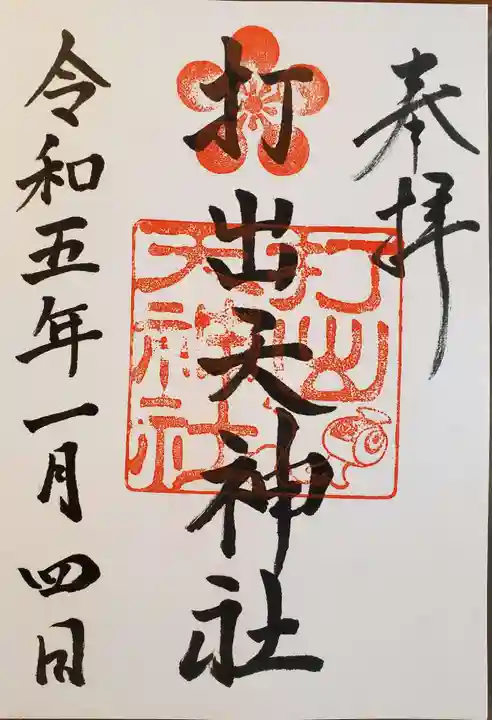 奉拝
打出天神社
令和五年一月四日
打出
天神社